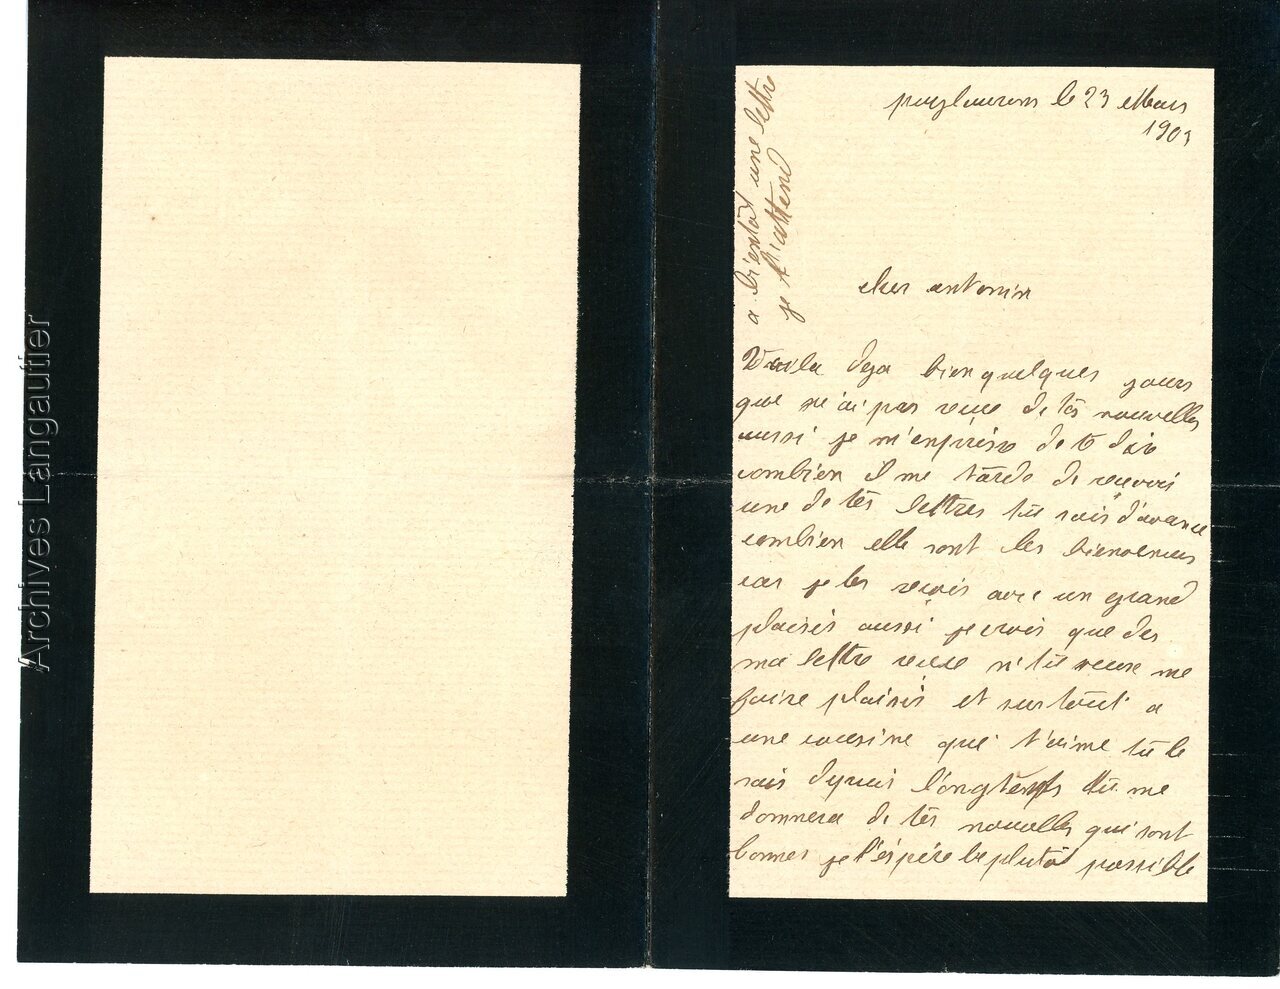 puylaurens le 23 Mars
1903
a bientôt une lettre
je t'attend
cher antonin
Voila deja bien quelques jours
que je n'ai pas recue de tés nouvelles
aussi je m'enprèse de te dire
combien il me tarde de recevoir
une de tés lettres tu sais d'avance
combien elle sont les bienvenues
car je les recois avec un grand
plaisir aussi je crois que des
ma lettre recue tu veux me
faire plaisir et surtout a
une cousine que t'aime tu le
sais depuis longtemps tu me
donnera de tés nouvelles qui sont
bonnes je l'éspére le plutôt possible
Archives Langautier